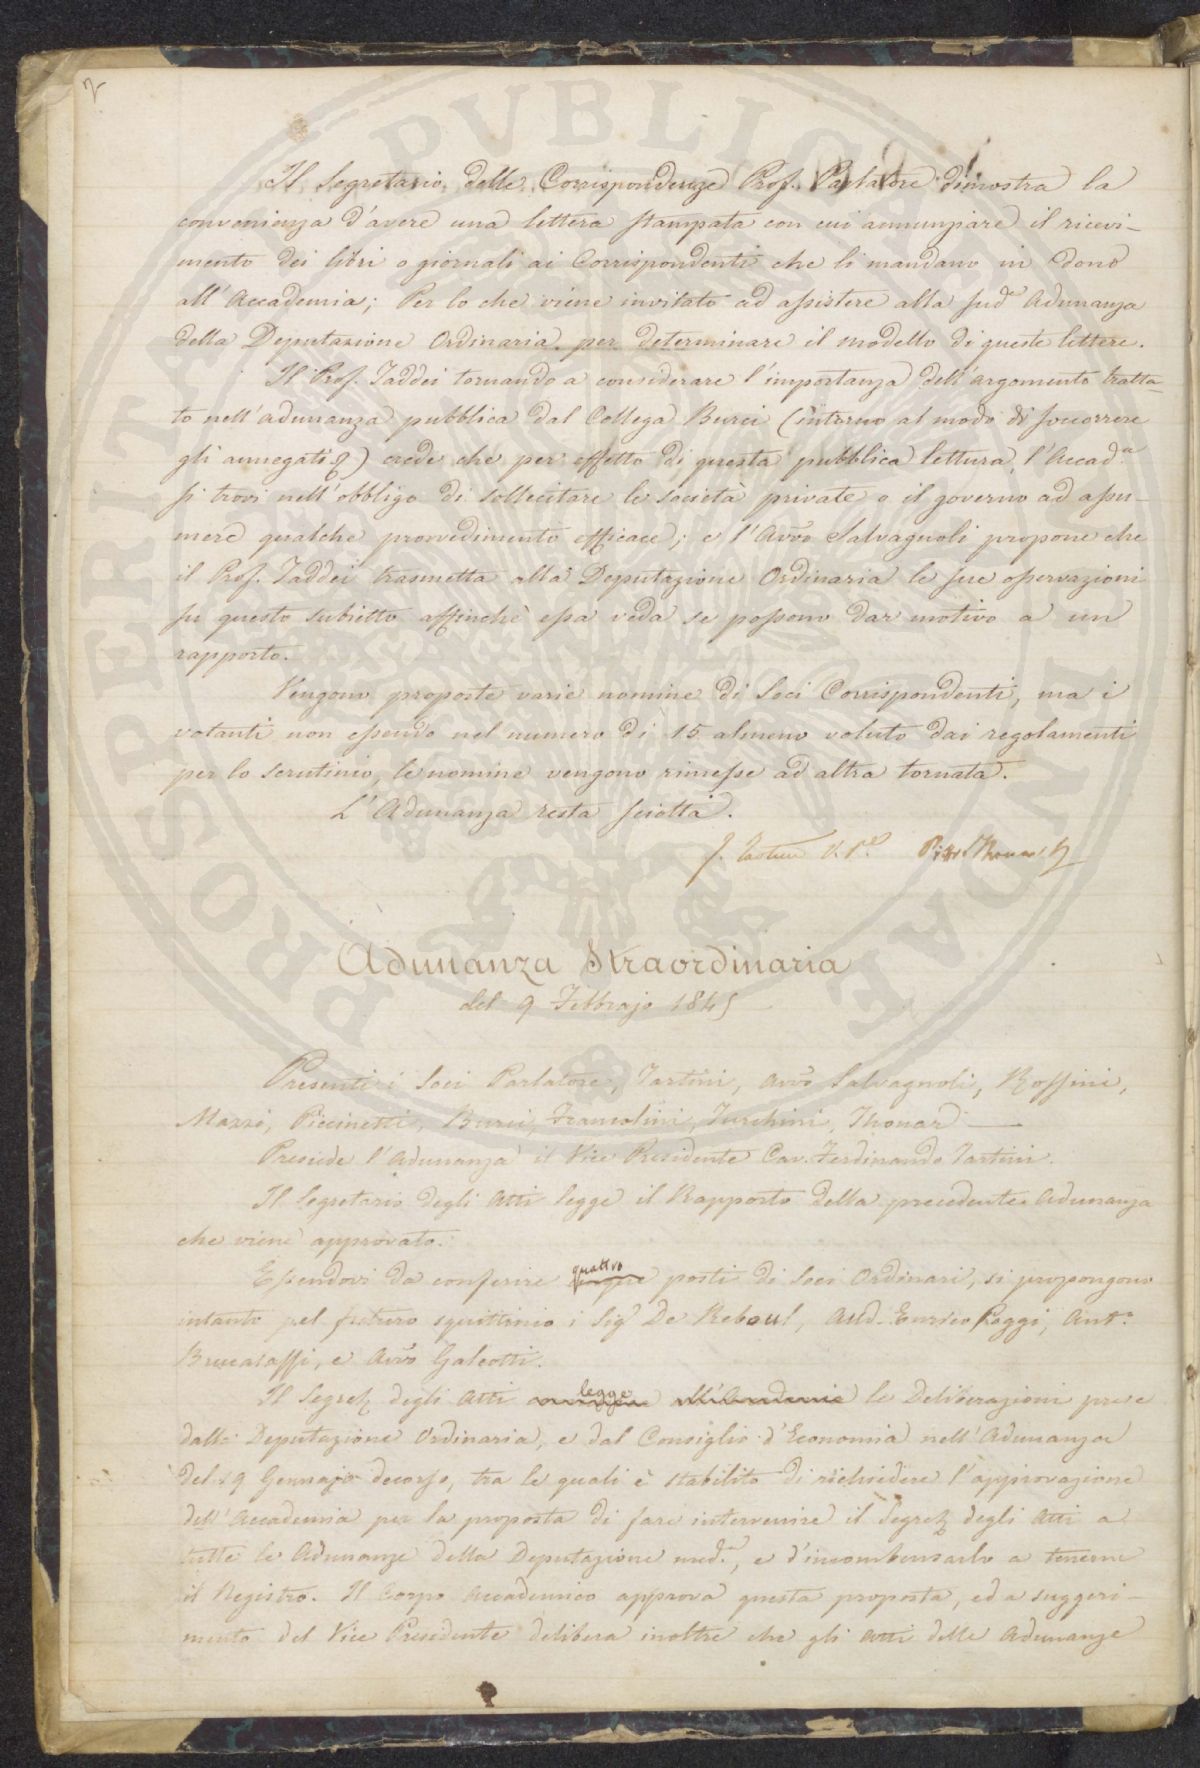 2
Il Segretario delle Corrispondenze Prof. Parlatore dimostra la
convenienza d'avere una lettera stampata con cui annunziare il ricevi-
mento dei libri o giornali ai Corrispondenti che li mandano in dono
all'Accademia; Per lo che viene invitato ad assistere alla sud.a Adunanza
della Deputazione Ordinaria per determinare il modello di queste lettere.
Il Prof. Taddei tornando a considerare l'importanza dell'argomento tratta-
to nell'adunanza pubblica dal Collega Burci (intorno al modo di soccorrere
gli annegati) crede che per effetto di questa pubblica lettura, l'Accad.a
si trovi nell'obbligo di sollecitare le società private o il governo ad assu-
mere qualche provvedimento efficace; e l'Avvo Salvagnoli propone che
il Prof. Taddei trasmetta alla Deputazione Ordinaria le sue osservazioni
su questo subietto affinchè essa veda se possono dar motivo a un
rapporto.
Vengono proposte varie nomine di Soci Corrispondenti, ma i
votanti non essendo nel numero di 15 almeno voluto dai regolamenti
per lo scrutinio, le nomine vengono rimesse ad altra tornata.
L'Adunanza resta sciolta.
F. Tartini V. P.e
Adunanza Straordinaria
del 9 Febbrajo 1845
Presenti i Soci Parlatore, Tartini, Avvo Salvagnoli, Rossini,
Mazzi, Piccinetti, Burci, Francolini, Turchini, Thouar
Presiede l'Adunanza il Vice Presidente Cav. Ferdinando Tartini.
Il Segretario degli Atti legge il Rapporto della precedente Adunanza
che viene approvato.
Essendovi da conferire quattro posti di Soci Ordinari, si propongono
intanto pel futuro squittinio i Sig.i De Reboul, Aud. Enrico Poggi, Ant.o
Bruscalassi, e Avvo Galeotti.
Il Segret. degli Atti legge le Deliberazioni prese
dalla Deputazione Ordinaria, e dal Consiglio d'Economia nell'Adunanza
del 19 Gennajo decorso, tra le quali è stabilito di richiedere l'approvazione
dell'Accademia per la proposta di fare intervenire il Segret. degli Atti a
tutte le Adunanze della Deputazione med.a, e d'incombensarlo a tenerne
il Registro. Il Corpo Accademico approva questa proposta, ed a suggeri-
mento del Vice Presidente delibera inoltre che gli Atti delle Adunanze
PROSPERITATI PUBLICAE